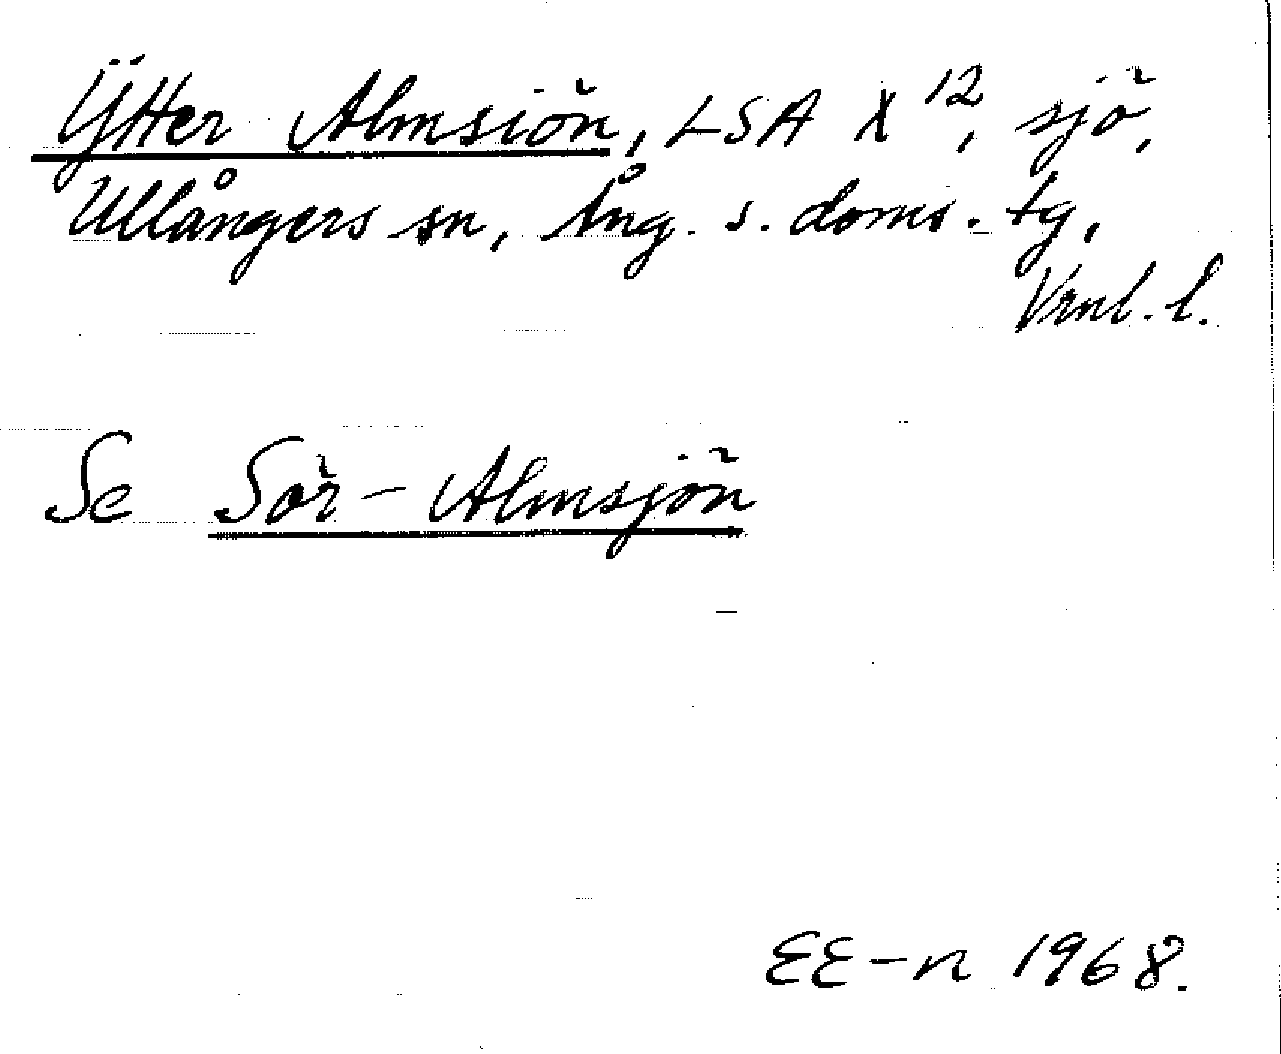 Ÿtter Almsiön, LSA X 12, sjö,
Ullångers sn, Ång. s. doms. tg,
Vrnl. l.
Se Sör-Almsjön
EE-n 1968.